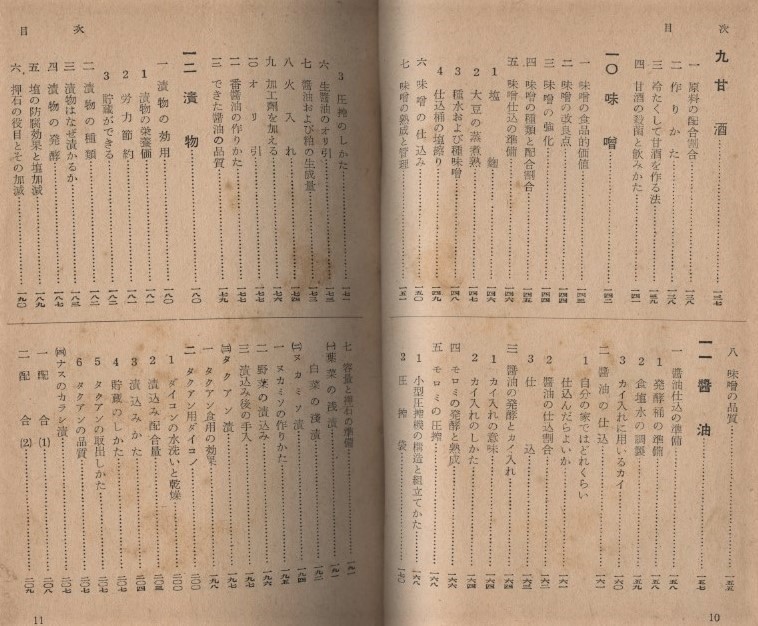 目次
九 甘酒……一三七
一 原料の配合割合……一三八
二 作りかた……一三八
三 冷たくして甘酒を作る法……一三九
四 甘酒の殺菌と飲みかた……一四一
一〇 味噌……一四二
一 味噌の食品的価値……一四三
二 味噌の改良点……一四四
三 味噌の強化……一四四
四 味噌の種類と配合割合……一四四
五 味噌仕込の準備……一四五
1 塩麹……一四六
2 大豆の蒸煮熟……一四七
3 種水および種味噌……一四八
4 仕込桶の塩磨り……一四九
六 味噌の仕込み……一五〇
七 味噌の熟成と管理……一五一
八 味噌の品質……一五五
一一 醤油……一五七
一 醤油仕込の準備……一五八
1 醗酵桶の準備……一五八
2 食塩水の調製……一五九
3 カイ入れに用いるカイ……一六〇
二 醤油の仕込……一六一
1 自分の家ではどれくらい
仕込んだらよいか……一六一
2 醤油の仕込割合……一六二
3 仕込……一六三
三 醤油の発酵とカイ入れ
1 カイ入れの意味
2 カイ入れのしかた
四 モロミの発酵と熟成……一六六
五 モロミの圧搾……一六八
1 小型圧搾機の構造と組立てかた……一六八
2 圧搾袋……一七〇
10
目次
3 圧搾のしかた……一七一
六 生醤油のオリ引……一七三
七 醤油および粕の生成量……一七三
八 火入れ……一七四
九 加工剤を加える……一七六
一〇 オリ引……一七七
一一 番醤油の作りかた……一七七
一二 できた醤油の品質……一七九
一二 漬物……一八〇
一 漬物の効用……一八〇
1 漬物の栄養価……一八一
2 労力節約……一八二
3 貯蔵ができる……一八二
二 漬物の種類……一八二
三 漬物はなぜ漬かるか……一八三
四 漬物の発酵……一八七
五 塩の防腐効果と塩加減……一八九
六 押石の役目とその加減……一九〇
七 容量と押石の準備……一九一
㈠ 葉菜の浅漬……一九一
白菜の浅漬……一九二
㈡ ヌカミソ漬……一九四
一 ヌカミソの作りかた……一九五
二 野菜の漬込み……一九六
三 漬込み後の手入……一九七
㈢ タクアン漬……一九七
一 タクアン食用の効果……一九八
二 タクアン用ダイコン……二〇〇
1 ダイコンの水洗いと乾燥……二〇〇
2 漬込み配合量……二〇三
3 漬込みかた……二〇四
4 貯蔵のしかた……二〇七
5 タクアンの取出しかた……二〇七
6 タクアンの品質……二〇七
㈣ ナスのカラシ漬……二〇七
一 配合(1)……二〇九
二 配合(2)……二〇九
11